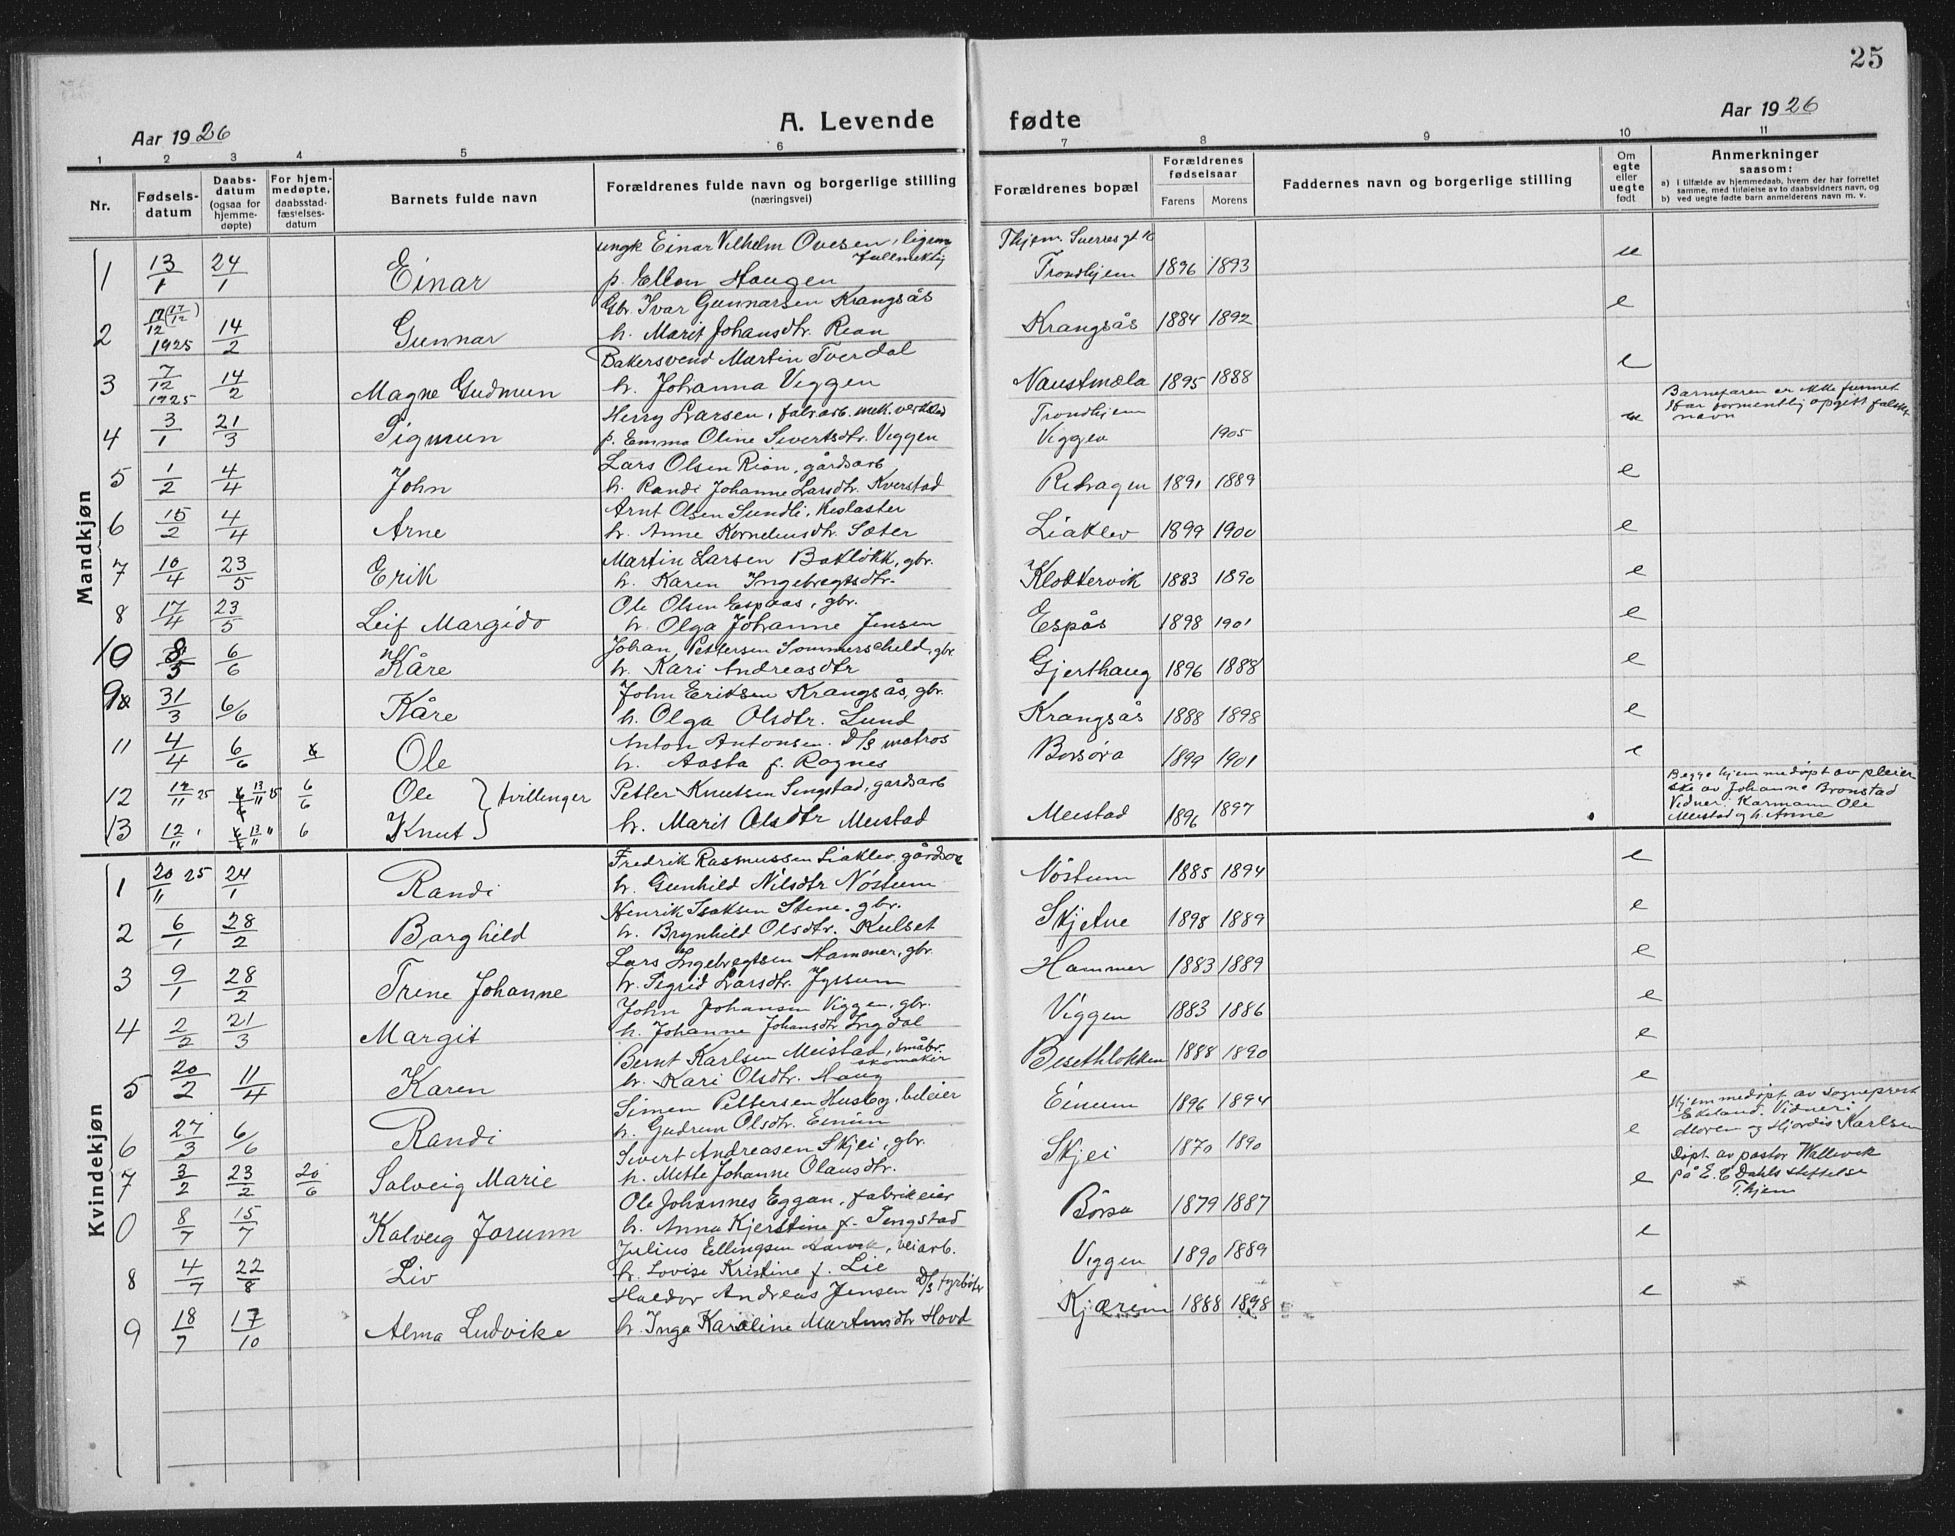 25
Aar 1926
A. Levende fødte
Aar 1926
1 2 3 4 5 6 7 8 9 10 11
Nr.
Fødsels-datum
Daabs-datum (ogsaa for hjemme-døpte)
For hjem-medøpte, daabsstad-fæstelses-datum
Barnets fulde navn
Forældrenes fulde navn og borgerlige stilling (næringsvei)
Forældrenes bopæl
Forældrenes fødselsaar
Farens Morens
Faddernes navn og borgerlige stilling
Om egte eller uegte født
Anmerkninger saasom:
a) I tilfælde av hjemmedaab, hvem der har forrettet samme, med tilføielse av to daabsvidners navn, og
b) ved uegte fødte barn anmelderens navn m. v.
Mandkjøn
ungk Einar Vilhelm Ovesen, Thjem. Sverres gt
1 13/1 24/1 Einar p. Ellen Haugen Trondhjem 1896 1893 u
Gbr. Ivar Gunnarsen Krangsås
2 17/12 (17/12) 1925 14/2 Gunnar h. Marit Johansdtr. Rian Krangsås 1884 1892 e
Bakersvend Martin Tverdal
3 7/12 1925 14/2 Magne Gudmun h. Johanna Viggen Naustmæla 1895 1888 e
Herry Larsen, fabr.arb. mek. Trondhjem
4 3/1 21/3 Sigmun p. Emma Oline Sivertsdtr. Viggen Viggen 1905 Barnefaren er ikke funnet
Har formentlig opgitt falskt navn
Lars Olsen Rian, gårdsarb
5 1/2 4/4 John h. Randi Johanne Larsdtr. Kverstad 1891 1889 e
Arnt Olsen Sundli,
6 15/2 4/4 Arne h. Anne Korneliusdtr. Sæter Liaklev 1899 1900 e
Martin Larsen Bakløkk, gbr.
7 10/4 23/5 Erik h. Karen Ingebregtsdtr. 1883 1890 e
Ole Olsen Espaas, gbr.
8 17/4 23/5 Leif Margido h. Olga Johanne Jensen Espås 1898 1901 e
Johan Pettersen Sommerschild, gbr
10 8/5 6/6 Kåre h. Kari Andreasdtr Gjerthaug 1896 1888 e
John Eriksen Krangsås, gbr.
9 31/3 6/6 Kåre h. Olga Olsdtr. Lund Krangsås 1888 1898 e
Anton Antonsen. D/s matros
11 4/4 6/6 Ole h. Aasta f. Ragnes Børsøra 1899 1901 e
12 12/11 25 13/11 25 6/6 Ole } tvillinger Petter Knutsen Singstad, gardsarb
13 12/11 " 13/11 " 6 Knut } h. Marit Olsdtr Meistad Meistad 1896 1897 Begge hjemmedøpt av pleier
ske av Johanne Bronstad
Vidner: Karmann Ole
Meistad og h. Anne
Kvindekjøn
Fredrik Rasmussen Liaklev, gårdsar
1 20/11 25 24/1 Randi h. Gunhild Nilsdtr Nøstum Nøstum 1885 1894 e
Henrik Isaksen Stene. gbr.
2 6/1 28/2 Borghild h. Brynhild Olsdtr. Kulset Skjetne 1898 1889 e
Lars Ingebregtsen Hammer, gbr.
3 9/1 28/2 Trine Johanne h. Sigrid Larsdtr. Jyssum Hammer 1883 1889 e
John Johansen Viggen, gbr.
4 2/2 21/3 Margit h. Johanne Johansdtr Ingdal Viggen 1883 1886 e
Bernt Karlsen Meistad, småbr. skomaker
5 20/2 11/4 Karen h. Kari Olsdtr. Haug Bisethløkken 1888 1890 e
Simen Pettersen Husby, bileier
6 27/3 6/6 Randi h. Gudrun Olsdtr. Einum Einum 1896 1894 e
Sivert Andreasen Skjei, gbr.
7 3/2 23/2 20/6 Solveig Marie h. Mette Johanne Olausdtr. Skjei 1870 1890 e Hjemmedøpt av sogneprest
Ekeland. Vidner:
Moren og Hjørdis Karlsen
Ole Johannes Eggan, fabrikeier
0 8/7 15/7 Kalveig Jorunn h. Anna Kjerstine f. Singstad Børsa 1879 1887 e Døpt av pastor Wallevik
på E. C Dahls stiftelse
T.hjem
Julius Ellingsen Aarvik, veiarb.
8 4/7 22/8 Liv h. Lovise Kristine f. Lie Viggen 1890 1889 e
Haldor Andreas Jensen D/s fyrbøter
9 18/7 17/10 Alma Ludvike h. Inga Karoline Martinsdtr Hovd Kjærem 1888 1898 e